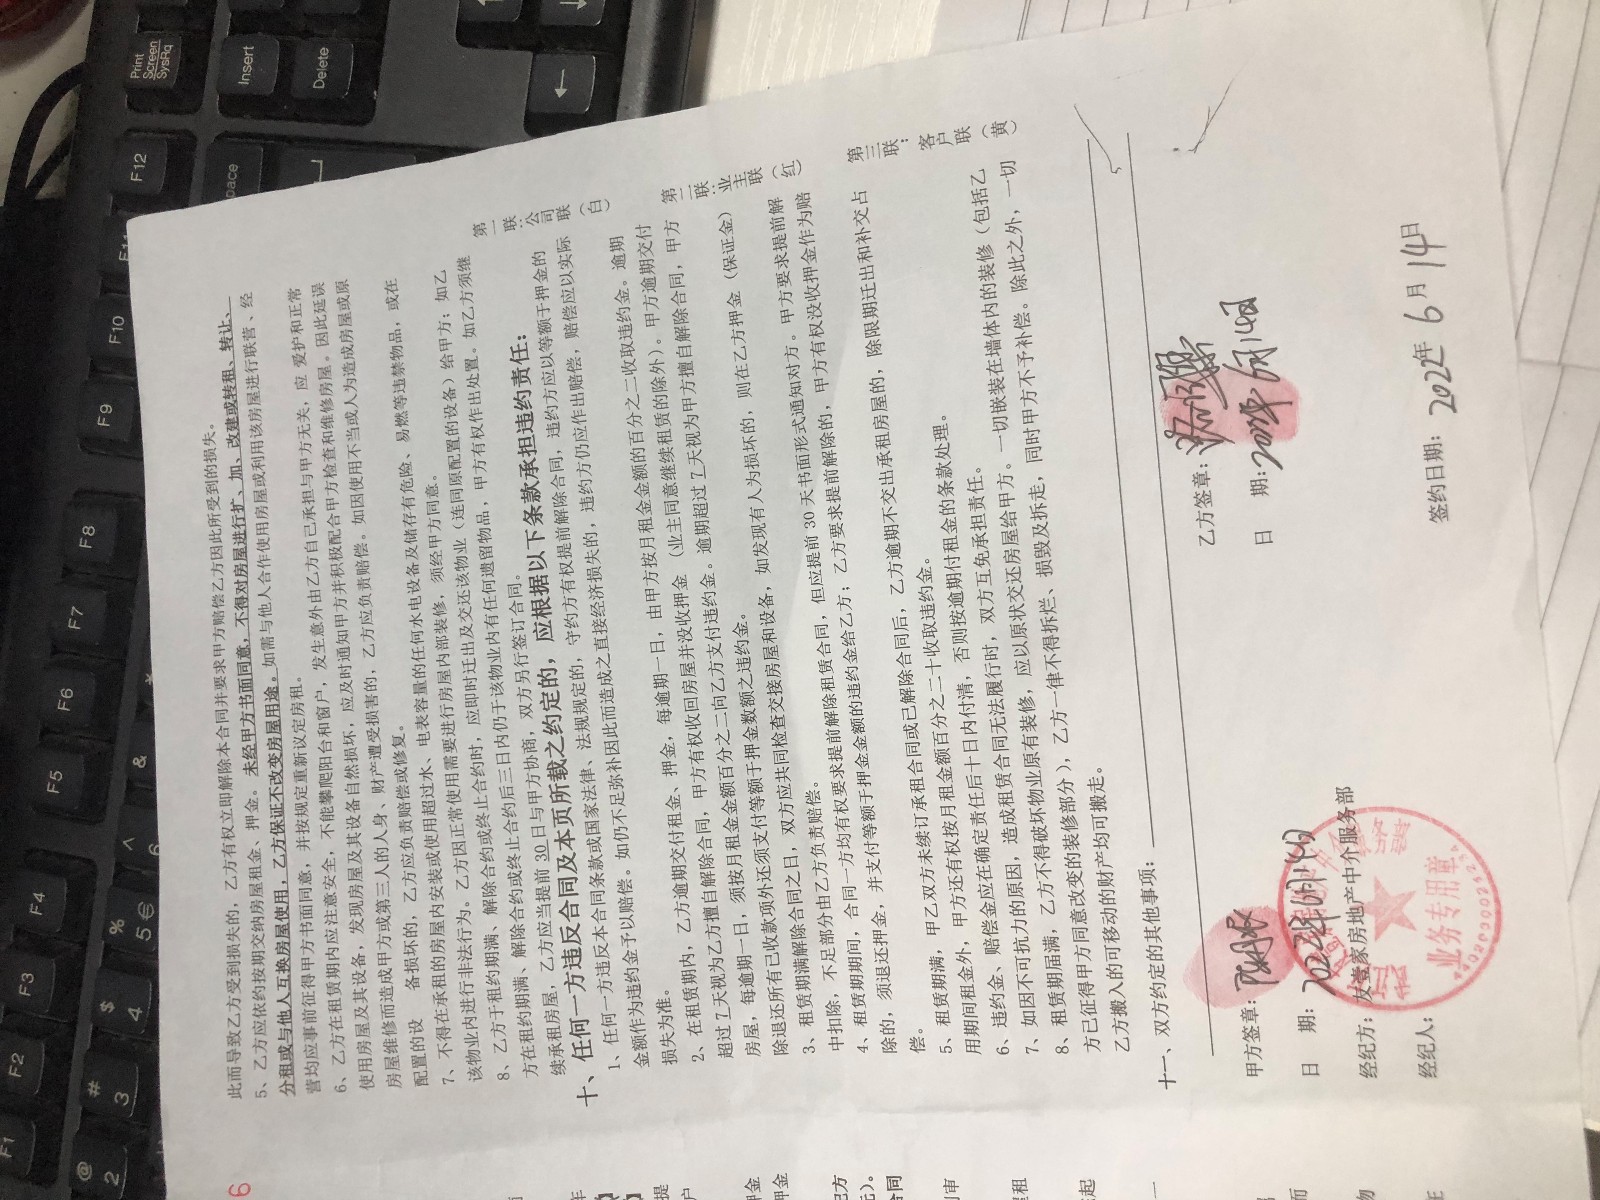 此而导致乙方受到损失的，乙方有权立即解除本合同并要求甲方赔偿乙方因此所受到的损失。
5、乙方应依约按期交纳房屋租金、押金。未经甲方书面同意，不得对房屋进行扩、加、改建或转租、转让、
分租或与他人互换房屋使用，乙方保证不改变房屋用途。如需与他人合作使用房屋或利用该房屋进行联营、经
营均应事前征得甲方书面同意，并按规定重新议定房租。
6、乙方在租赁期内应注意安全，不能攀爬阳台和窗户，发生意外由乙方自己承担与甲方无关，应 爱护和正常
使用房屋及其设备，发现房屋及其设备自然损坏，应及时通知甲方并积极配合甲方检查和维修房屋。因此延误
房屋维修而造成甲方或第三人的人身、财产遭受损害的，乙方应负责赔偿。如因使用不当或人为造成房屋或原
配置的设 备损坏的，乙方应负责赔偿或修复。
7、不得在承租的房屋内安装或使用超过水、电表容量的任何水电设备及储存有危险、易燃等违禁物品，或在
该物业内进行非法行为。乙方因正常使用需要进行房屋内部装修，须经甲方同意。
8、乙方于租约期满、解除合约或终止合约时，应即时迁出及交还该物业（连同原配置的设备）给甲方；如乙
方在租约期满、解除合约或终止合约后三日内仍于该物业内有任何遗留物品，甲方有权作出处置。如乙方须继
续承租房屋，乙方应当提前 30 日与甲方协商，双方另行签订合同。
十、任何一方违反合同及本页所载之约定的，应根据以下条款承担违约责任：
1、任何一方违反本合同条款或国家法律、法规规定的，守约方有权提前解除合同，违约方应以等额于押金的
金额作为违约金予以赔偿。如仍不足弥补因此而造成之直接经济损失的，违约方仍应作出赔偿，赔偿应以实际
损失为准。
2、在租赁期内，乙方逾期交付租金、押金，每逾期一日，由甲方按月租金金额的百分之二收取违约金。逾期
超过 7 天视为乙方擅自解除合同，甲方有权收回房屋并没收押金（业主同意继续租赁的除外）。甲方逾期交付
房屋，每逾期一日，须按月租金金额百分之二向乙方支付违约金。逾期超过 7 天视为甲方擅自解除合同，甲方
除退还所有已收款项外还须支付等额于押金数额之违约金。
3、租赁期满解除合同之日，双方应共同检查交接房屋和设备，如发现有人为损坏的，则在乙方押金（保证金）
中扣除，不足部分由乙方负责赔偿。
4、租赁期期间，合同一方均有权要求提前解除租赁合同，但应提前 30 天书面形式通知对方。甲方要求提前解
除的，须退还押金，并支付等额于押金金额的违约金给乙方；乙方要求提前解除的，甲方有权没收押金作为赔
偿。
5、租赁期满，甲乙双方未续订承租合同或已解除合同后，乙方逾期不交出承租房屋的，除限期迁出和补交占
用期间租金外，甲方还有权按月租金额百分之二十收取违约金。
6、违约金、赔偿金应在确定责任后十日内付清，否则按逾期付租金的条款处理。
7、如因不可抗力的原因，造成租赁合同无法履行时，双方互免承担责任。
8、租赁期届满，乙方不得破坏物业原有装修，应以原状交还房屋给甲方。一切嵌装在墙体内的装修（包括乙
方已征得甲方同意改变的装修部分），乙方一律不得拆烂、损毁及拆走，同时甲方不予补偿。除此之外，一切
乙方搬入的可移动的财产均可搬走。
十一、双方约定的其他事项：
甲方签章：
日 期：
乙方签章：
日 期：
经纪方：友登家房地产中介服务部
经纪人：
签约日期：2022年 6 月 14日
第一联：公司联（白）
第二联：业主联（红）
第三联：客户联（黄）
业务专用章
6
Print
Screen
SysRq
Insert
Delete
F1
F2
F3
F4
F5
F6
F7
F8
F9
F10
F11
F12
@
2
#
3
$
4
%
5 €
^
6
&
*